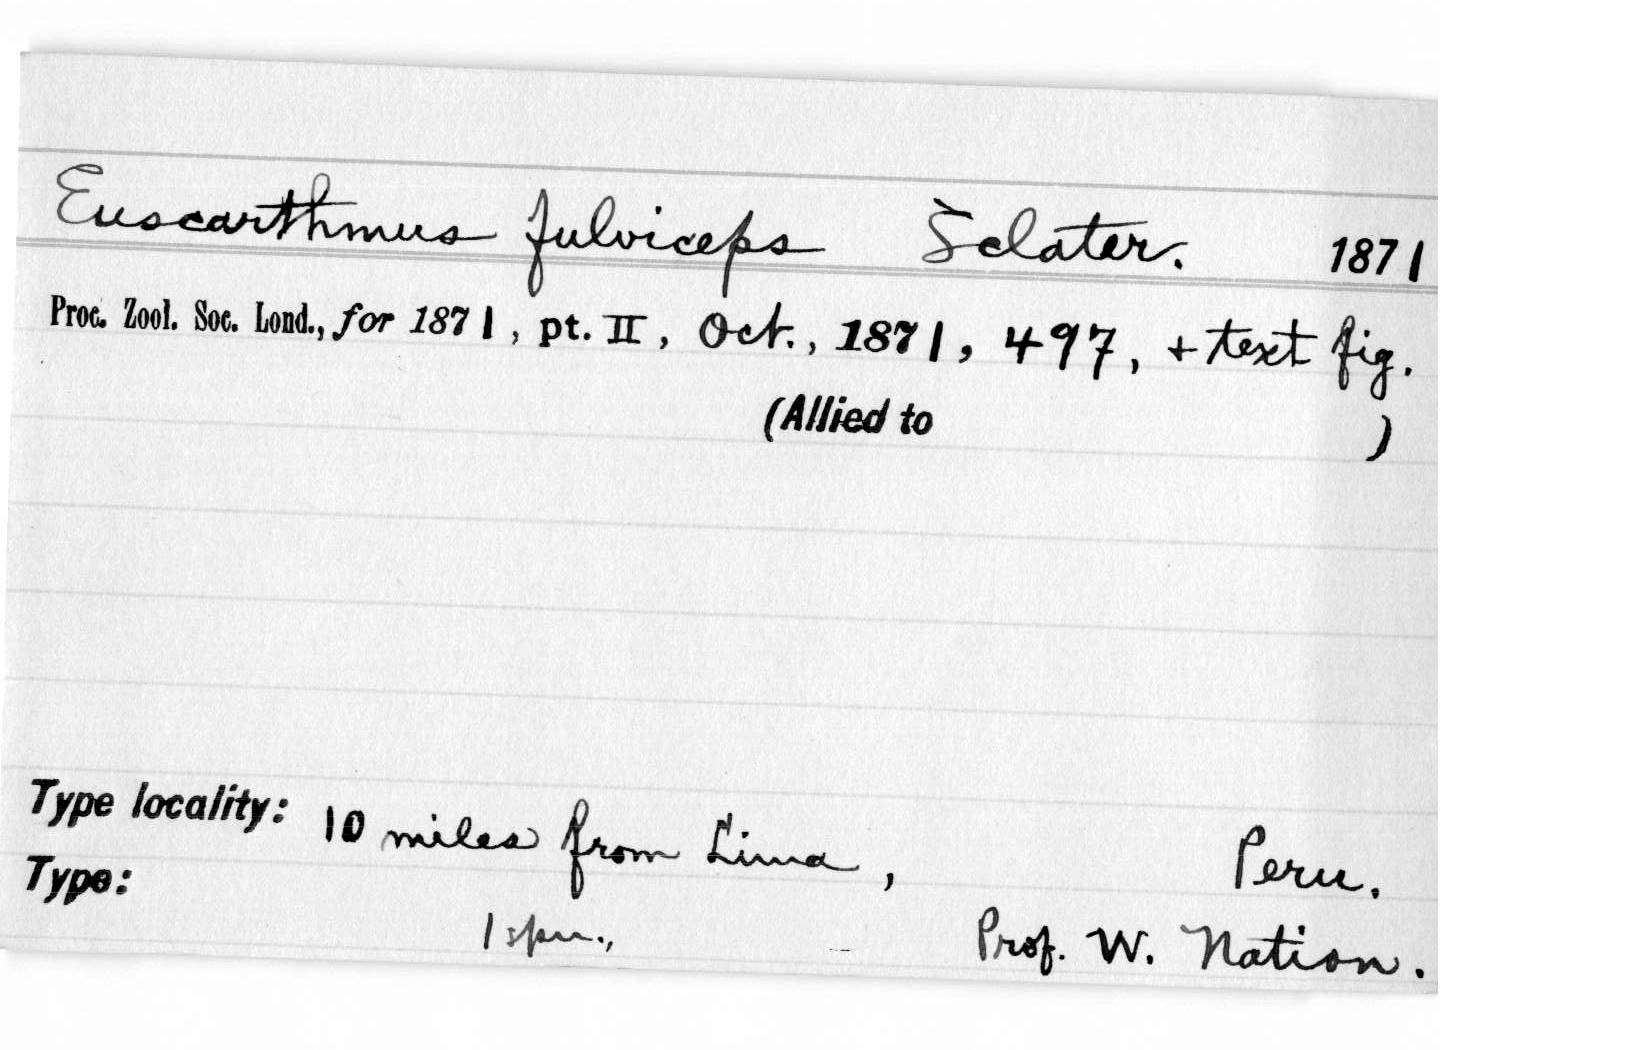 Euscarthmus fulviceps Sclater. 1871
Proc. Zool. Soc. Lond., for 1871, pt. II, Oct., 1871, 497, + text fig.
(Allied to )
Type locality: 10 miles from Lima, Peru.
Type: 1 spm., Prof. W. Nation.